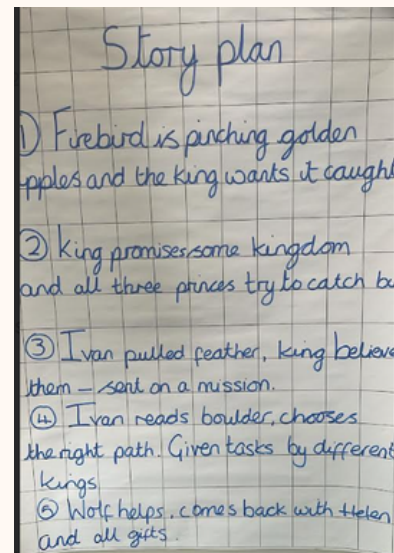 Story plan
① Firebird is pinching golden
apples and the king wants it caught
② King promises some kingdom
and all three princes try to catch
③ Ivan pulled feather, king believe
them – sent on a mission.
④ Ivan reads boulder, chooses
the right path. Given tasks by different
kings
⑤ Wolf helps. comes back with Helen
and all gifts.